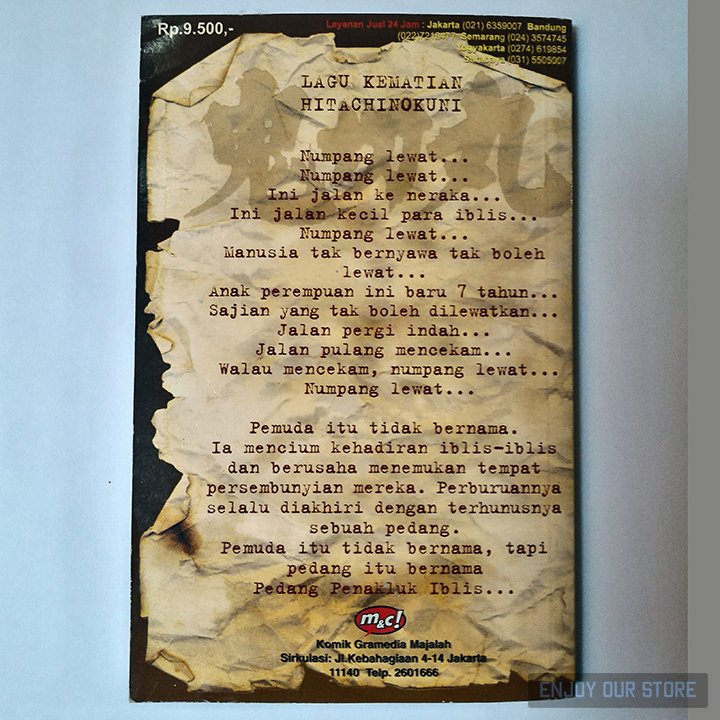 Rp.9.500,-
Layanan Jual 24 Jam : Jakarta (021) 6359007 Bandung
(022) Semarang (024) 3574745
Yogyakarta (0274) 619854
Surabaya (031) 5505007
LAGU KEMATIAN
HITACHINOKUNI
Numpang lewat...
Numpang lewat...
Ini jalan ke neraka...
Ini jalan kecil para iblis...
Numpang lewat...
Manusia tak bernyawa tak boleh
lewat...
Anak perempuan ini baru 7 tahun...
Sajian yang tak boleh dilewatkan...
Jalan pergi indah...
Jalan pulang mencekam...
Walau mencekam, numpang lewat...
Numpang lewat...
Pemuda itu tidak bernama.
Ia mencium kehadiran iblis-iblis
dan berusaha menemukan tempat
persembunyian mereka. Perburuannya
selalu diakhiri dengan terhunusnya
sebuah pedang.
Pemuda itu tidak bernama, tapi
pedang itu bernama
Pedang Penakluk Iblis...
m&c!
Komik Gramedia Majalah
Sirkulasi: Jl.Kebahagiaan 4-14 Jakarta
11140 Telp. 2601666
ENJOY OUR STORE